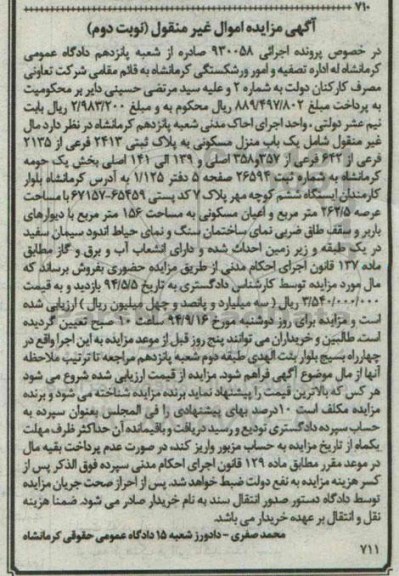 ۷۱۰
آگهی مزایده اموال غیر منقول (نوبت دوم)
در خصوص پرونده اجرائی ۹۳۰۰۵۸ صادره از شعبه پانزدهم دادگاه عمومی
کرمانشاه له اداره تصفیه و امور ورشکستگی کرمانشاه به قائم مقامی شرکت تعاونی
مصرف کارکنان دولت به شماره ۲ و علیه سید مرتضی حسینی دایر بر محکومیت
به پرداخت مبلغ ۸۸۹/۴۹۷/۸۰۲ ریال محکوم به و مبلغ ۲/۹۸۳/۲۰۰ ریال بابت
نیم عشر دولتی ، واحد اجرای احاک مدنی شعبه پانزدهم کرمانشاه در نظر دارد مال
غیر منقول شامل یک باب منزل مسکونی به پلاک ثبتی ۲۴۱۳ فرعی از ۲۱۳۵
فرعی از ۶۴۲ فرعی از ۳۵۷و۳۵۸ اصلی و ۱۳۹ الی ۱۴۱ اصلی بخش یک حومه
کرمانشاه به شماره ثبت ۲۶۵۹۴ صفحه ۵ دفتر ۱/۱۲۵ به آدرس کرمانشاه بلوار
کارمندان ایستگاه ششم کوچه مهر پلاک ۷ کد پستی ۶۵۴۵۹-۶۷۱۵۷ با مساحت
عرصه ۲۶۲/۵ متر مربع و اعیان مسکونی به مساحت ۱۵۶ متر مربع با دیوارهای
باربر و سقف طاق ضربی نمای ساختمان سنگ و نمای حیاط اندود سیمان سفید
در یک طبقه و زیر زمین احداث شده و دارای انشعاب آب و برق و گاز مطابق
ماده ۱۳۷ قانون اجرای احکام مدنی از طریق مزایده حضوری بفروش برساند که
مال مورد مزایده توسط کارشناس دادگستری به تاریخ ۹۴/۵/۵ بازدید و به قیمت
۳/۵۴۰/۰۰۰/۰۰۰ ریال ( سه میلیارد و پانصد و چهل میلیون ریال ) ارزیابی شده
است و مزایده برای روز دوشنبه مورخ ۹۴/۹/۱۶ ساعت ۱۰ صبح تعیین گردیده
است. طالبین و خریداران می توانند پنج روز قبل از موعد مزایده به این اجرا واقع در
چهارراه بسیج بلوار بنت الهدی طبقه دوم شعبه پانزدهم مراجعه تا ترتیب ملاحظه
آنها از مال موضوع آگهی فراهم شود. مزایده از قیمت ارزیابی شده شروع می شود
هر کس که بالاترین قیمت را پیشنهاد نماید برنده مزایده شناخته می شود و برنده
مزایده مکلف است ۱۰درصد بهای پیشنهادی را فی المجلس بعنوان سپرده به
حساب سپرده دادگستری تودیع و رسید دریافت و باقیمانده آن حداکثر ظرف مهلت
یکماه از تاریخ مزایده به حساب مزبور واریز کند، در صورت عدم پرداخت بقیه مال
در موعد مقرر مطابق ماده ۱۲۹ قانون اجرای احکام مدنی سپرده فوق الذکر پس از
کسر هزینه مزایده به نفع دولت ضبط خواهد شد. پس از احراز صحت جریان مزایده
توسط دادگاه دستور صدور انتقال سند به نام خریدار صادر می شود. ضمنا هزینه
نقل و انتقال بر عهده خریدار می باشد.
محمد صفری - دادورز شعبه ۱۵ دادگاه عمومی حقوقی کرمانشاه
۷۱۱